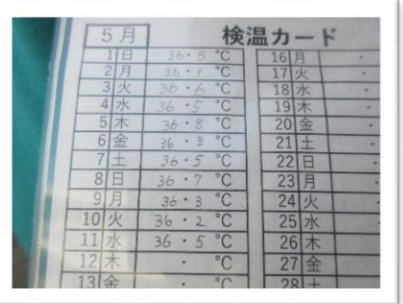 5月
検温カード
1 日 36・5 ℃
2 月 36・1 ℃
3 火 36・6 ℃
4 水 36・5 ℃
5 木 36・8 ℃
6 金 36・3 ℃
7 土 36・5 ℃
8 日 36・7 ℃
9 月 36・3 ℃
10 火 36・2 ℃
11 水 36・5 ℃
12 木 ・ ℃
13 金 ・ ℃
16 月 ・
17 火 ・
18 水 ・
19 木 ・
20 金 ・
21 土 ・
22 日 ・
23 月 ・
24 火 ・
25 水 ・
26 木 ・
27 金 ・
28 土 ・